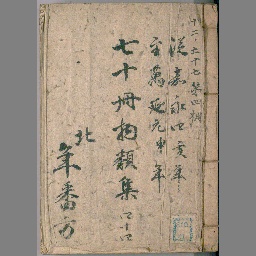 十二ノ七十七 第四期
従嘉永四亥年
至萬延元申年
七十冊物類集
四十四
北
年番方